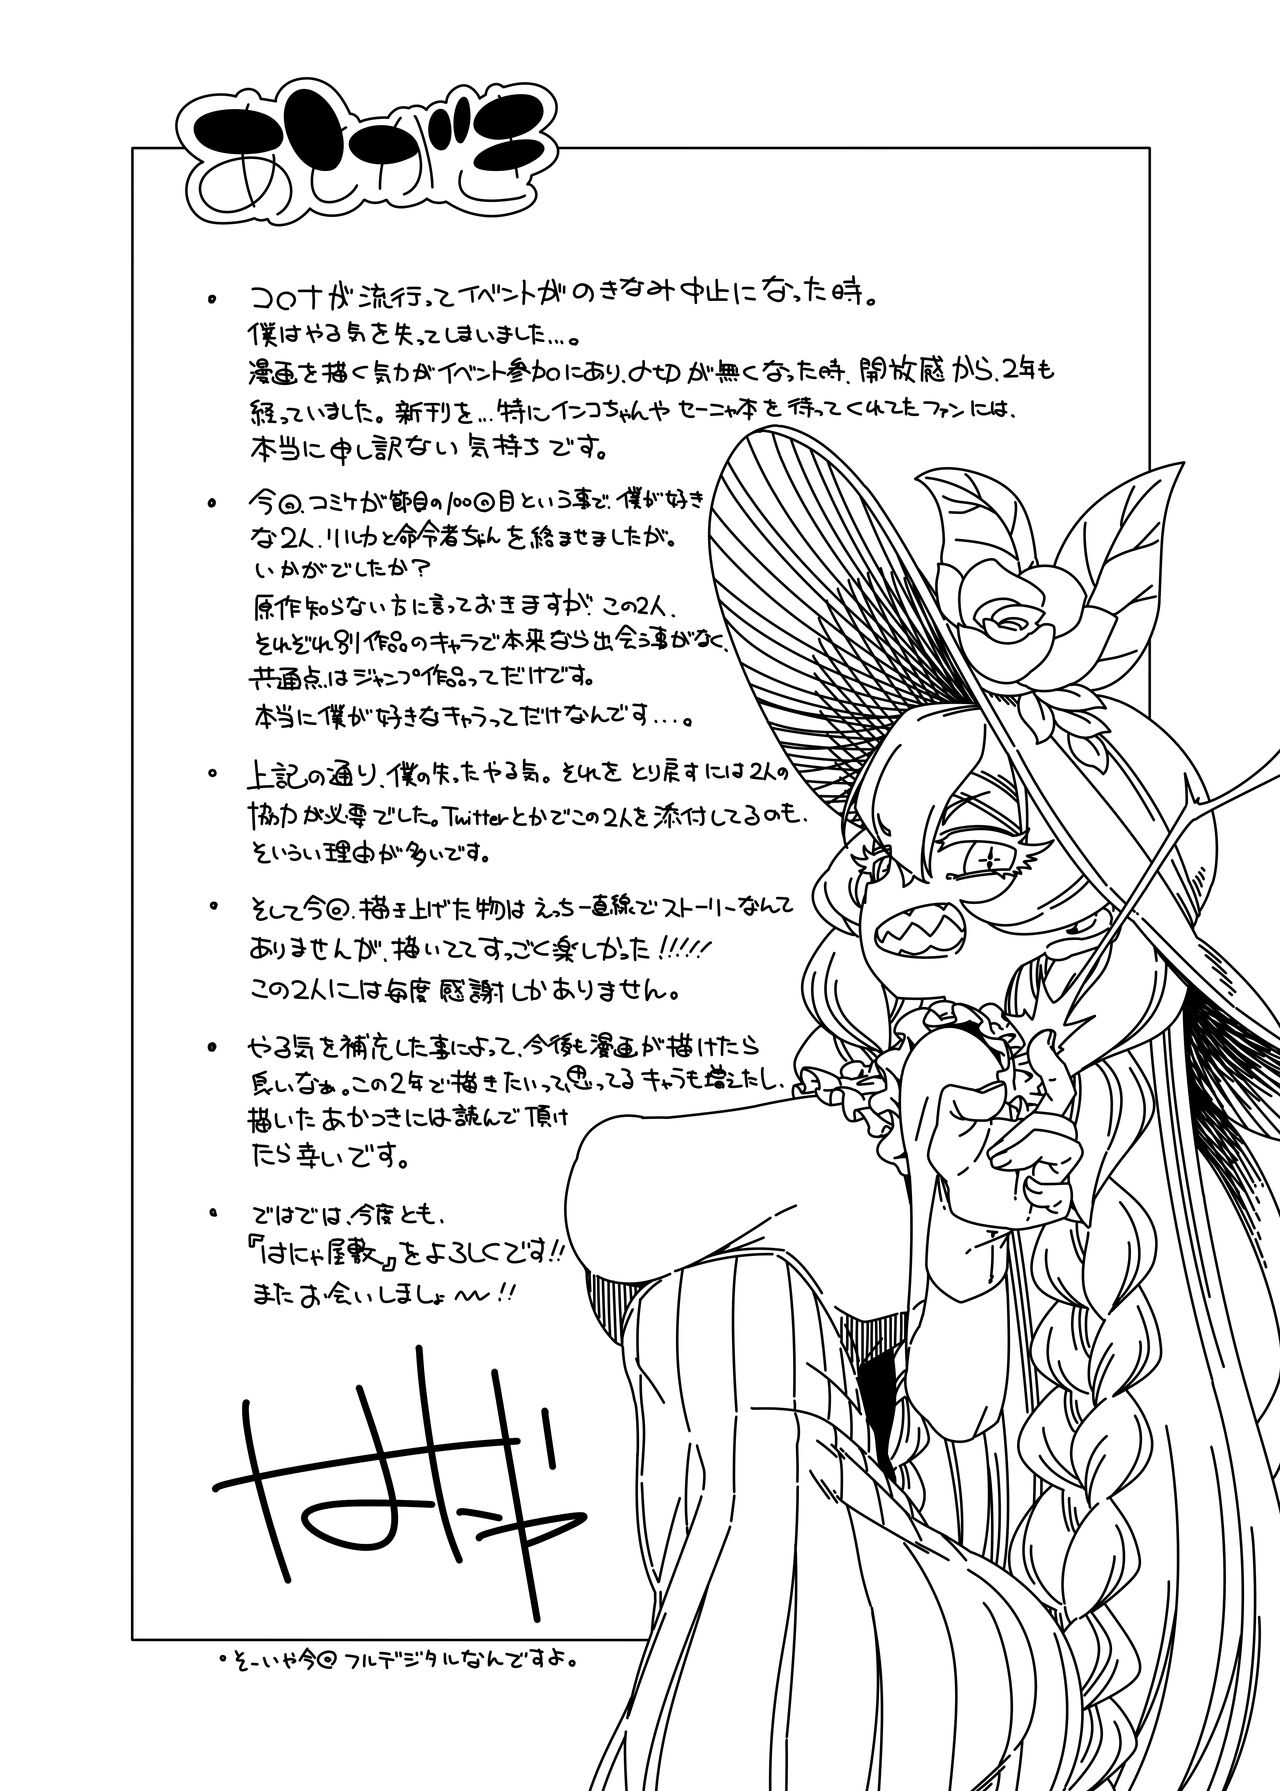 あとがき
・コロナが流行ってイベントがのきなみ中止になった時。
僕はやる気を失ってしまいました…。
漫画を描く気力がイベント参加にあり、〆切が無くなった時、開放感から、2年も
経っていました。新刊を…特にインコちゃんやセーニャ本を待ってくれてたファンには、
本当に申し訳ない気持ちです。
・今回、コミケが節目の100回目という事で、僕が好き
な2人、リルカと命令者ちゃんを絡ませましたが。
いかがでしたか?
原作知らない方に言っておきますが、この2人、
それぞれ別作品のキャラで本来なら出会う事がなく、
共通点はジャンプ作品ってだけです。
本当に僕が好きなキャラってだけなんです…。
・上記の通り、僕の失ったやる気。それをとり戻すには2人の
協力が必要でした。Twitterとかでこの2人を添付してるのも、
そういうい理由が多いです。
・そして今回、描き上げた物はえっち一直線でストーリーなんて
ありませんが、描いててすっごく楽しかった!!!!!
この2人には毎度感謝しかありません。
・やる気を補充した事によって、今後も漫画が描けたら
良いなぁ。この2年で描きたいって、思ってるキャラも増えたし、
描いたあかつきには読んで頂け
たら幸いです。
・ではでは、今度とも、
『はにゃ屋敷』をよろしくです!!
またお会いしましょ〜!!
はにゃ
・そーいや今回フルデジタルなんですよ。